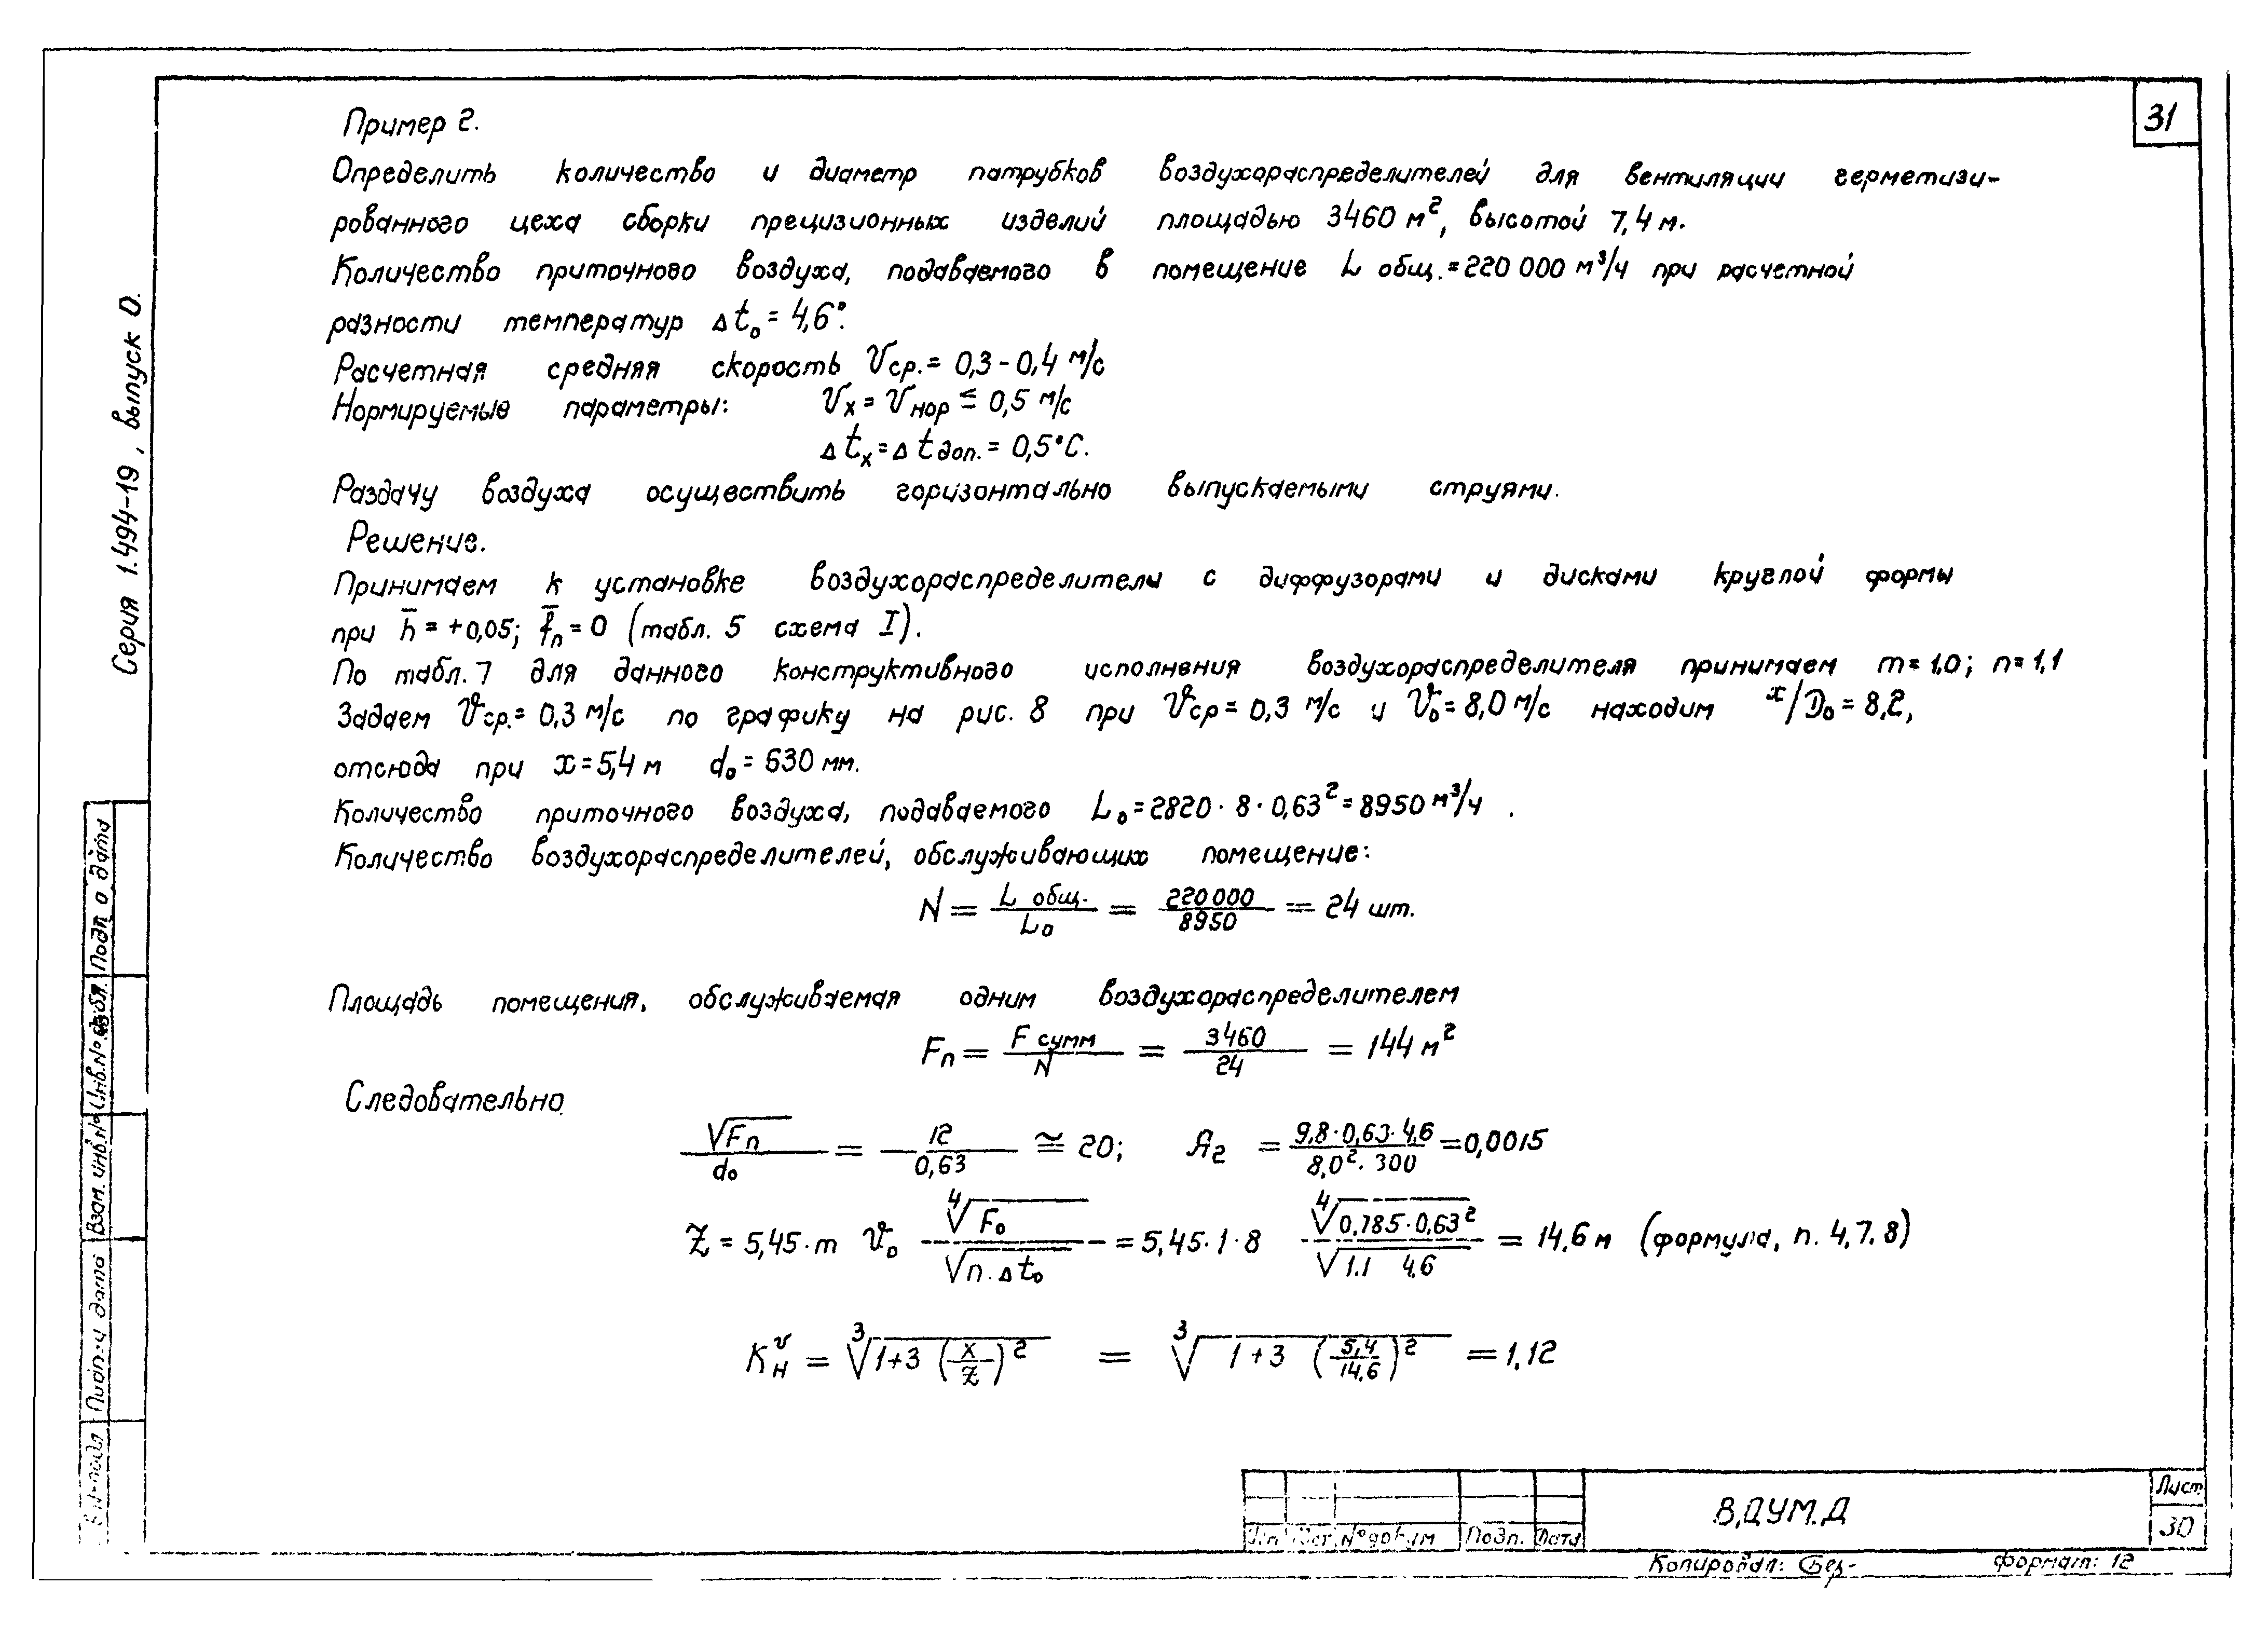 31
Пример 2.
Определить количество и диаметр патрубков воздухораспределителей для вентиляции герметизи-
рованного цеха сборки прецизионных изделий площадью 3460 м², высотой 7,4 м.
Количество приточного воздуха, подаваемого в помещение L общ.=220 000 м³/ч при расчетной
разности температур Δt₀ = 4,6°.
Расчетная средняя скорость Vср.= 0,3-0,4 м/с
Нормируемые параметры: Vx = Vнор ≤ 0,5 м/с
Δtx = Δtдоп. = 0,5°C.
Раздачу воздуха осуществить горизонтально выпускаемыми струями.
Решение.
Принимаем к установке воздухораспределители с диффузорами и дисками круглой формы
при h̄ = +0,05; f̄п = 0 (табл. 5 схема I).
По табл. 7 для данного конструктивного исполнения воздухораспределителя принимаем m = 1,0; n = 1,1
Задаем Vср.= 0,3 м/с по графику на рис. 8 при Vср = 0,3 м/с и V₀ = 8,0 м/с находим x/D₀ = 8,2,
отсюда при x = 5,4 м d₀ = 630 мм.
Количество приточного воздуха, подаваемого L₀ = 2820 · 8 · 0,63² = 8950 м³/ч .
Количество воздухораспределителей, обслуживающих помещение:
N = L общ. / L₀ = 220 000 / 8950 = 24 шт.
Площадь помещения, обслуживаемая одним воздухораспределителем
Fп = F сумм / N = 3460 / 24 = 144 м²
Следовательно
√Fп / d₀ = 12 / 0,63 ≅ 20; Я₂ = 9,8 · 0,63 · 4,6 / 8,0² · 300 = 0,0015
Z = 5,45 · m V₀ ⁴√F₀ / √n · Δt₀ = 5,45 · 1 · 8 ⁴√0,785 · 0,63² / √1.1 4,6 = 14,6 м (формула, п. 4.7.8)
Kнᵛ = ³√1+3 (x/Z)² = ³√1+3 (5,4/14,6)² = 1,12
Серия 1.494-19, выпуск 0.
Подп. и дата
Инв.№ дубл.
Взам. инв.№
Подп. и дата
№ подл
№ докум Подп. Дата
В,ДУМ.Д
Лист
30
Копировал:
Формат: 12